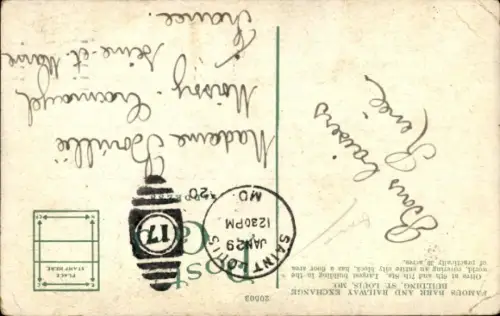 FAMOUS BARR AND RAILWAY EXCHANGE
BUILDING, ST. LOUIS, MO.
Olive at 6th and 7th Sts. Largest building in the
world, covering an entire city block; has a floor area
of practically 30 acres.
20503
Post
Card
PLACE
STAMP HERE
SAINT LOUIS
JAN 29
1230PM
MO.
'20
17
Bons baisers
Renée
Madame
Moissy - Cramayel
Seine-et-Marne
France